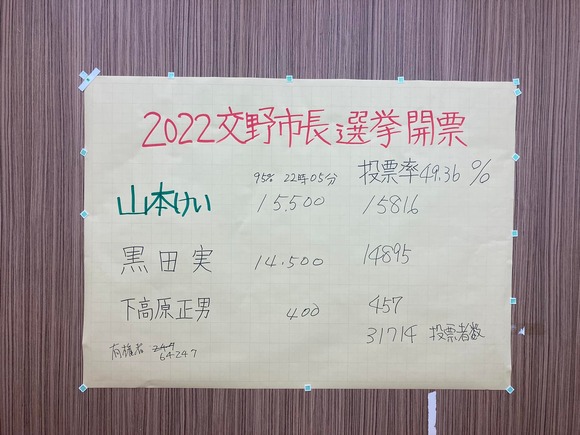 2022交野市長選挙開票
95% 22時05分 投票率49.36%
山本けい 15.500 15816
黒田実 14.500 14895
下高原正男 400 457
31714 投票者数
有権者
64247